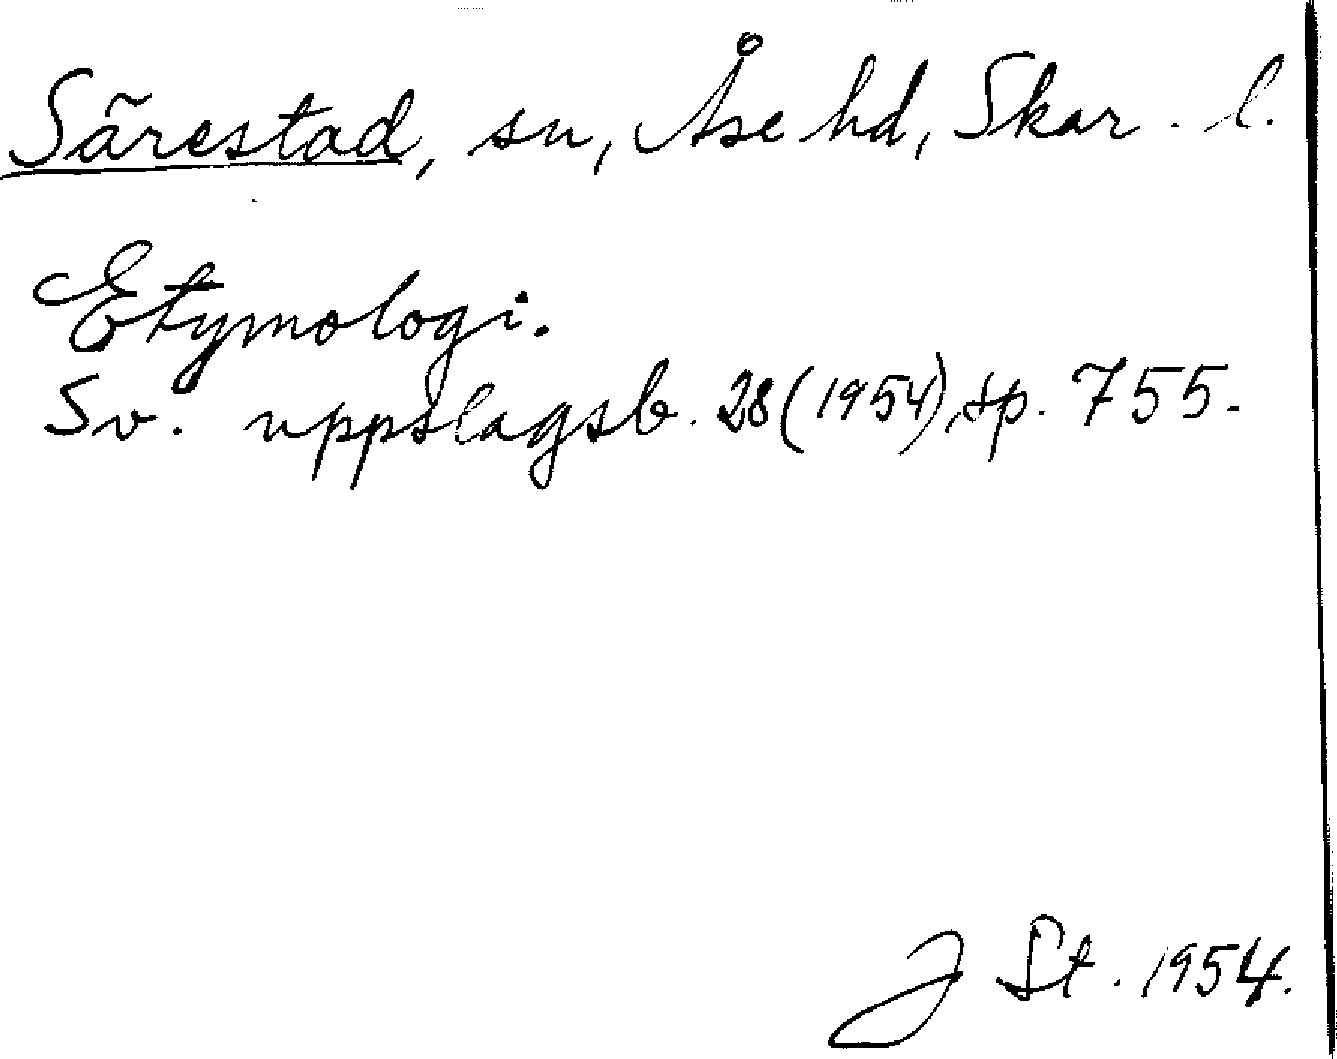 Särestad, sn, Åse hd, Skar. l.
Etymologi.
Sv. uppslagsb. 28 (1954), sp. 755.
J St. 1954.